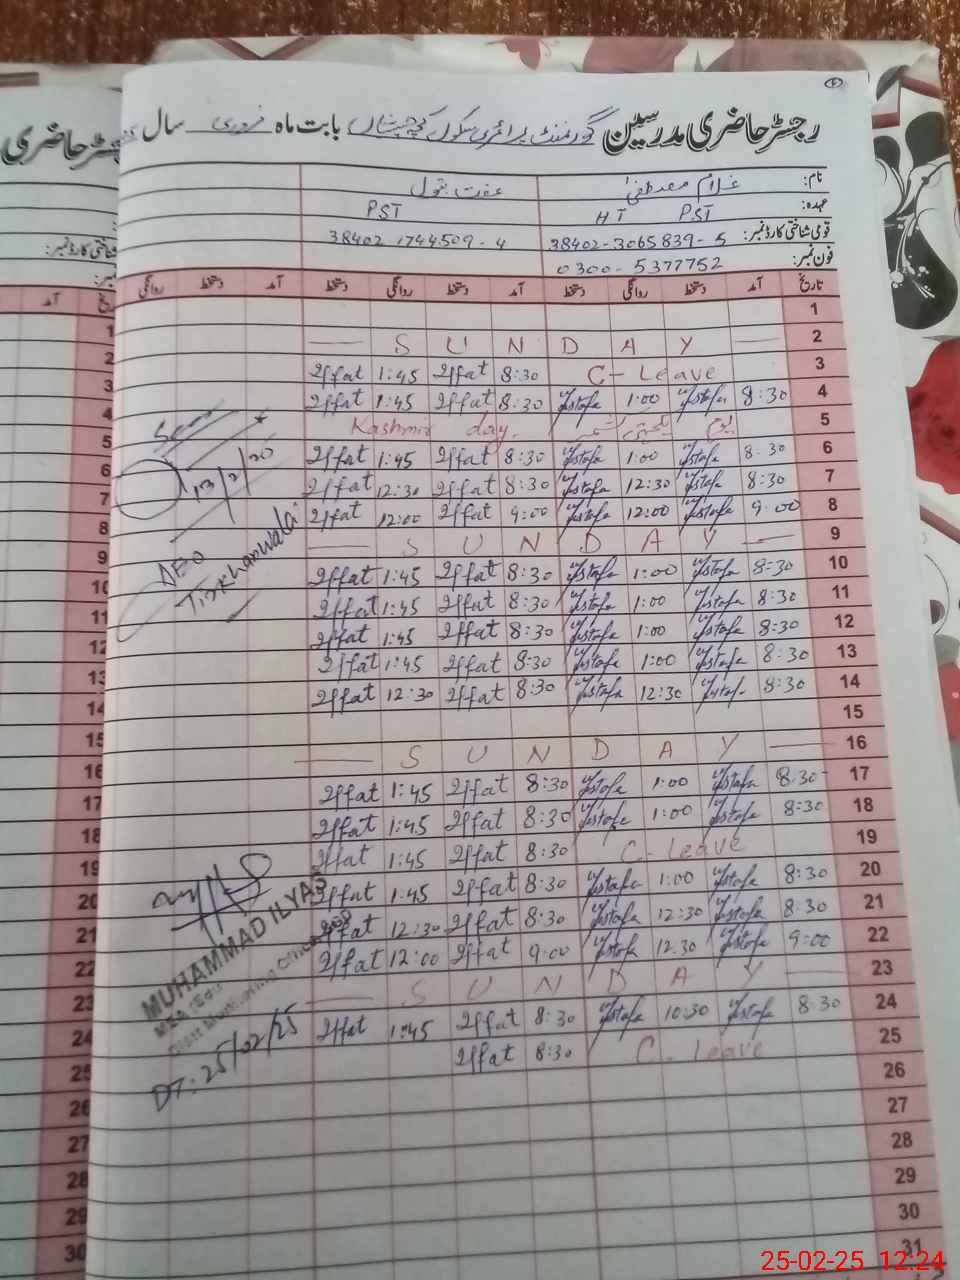 رجسٹر حاضری مدرسین گورنمنٹ پرائمری سکول بابت ماہ فروری سال
نام: غلام مصطفیٰ عفت بتول
عہدہ: PST HT PST
قومی شناختی کارڈ نمبر: 38402-3065839-5 38402 1744509-4
فون نمبر: 0300-5377752
تاریخ آمد دستخط روانگی دستخط آمد دستخط روانگی دستخط آمد دستخط روانگی
1
2 SUNDAY
3 C-Leave 8:30 Iffat 1:45 Iffat
4 8:30 Mustafa 1:00 Mustafa 8:30 Iffat 1:45 Iffat
5 یوم یکجہتی کشمیر Kashmir day.
6 8:30 Mustafa 1:00 Mustafa 8:30 Iffat 1:45 Iffat
7 8:30 Mustafa 12:30 Mustafa 8:30 Iffat 12:30 Iffat
8 9:00 Mustafa 12:00 Mustafa 9:00 Iffat 12:00 Iffat
9 SUNDAY
10 8:30 Mustafa 1:00 Mustafa 8:30 Iffat 1:45 Iffat
11 8:30 Mustafa 1:00 Mustafa 8:30 Iffat 1:45 Iffat
12 8:30 Mustafa 1:00 Mustafa 8:30 Iffat 1:45 Iffat
13 8:30 Mustafa 1:00 Mustafa 8:30 Iffat 1:45 Iffat
14 8:30 Mustafa 12:30 Mustafa 8:30 Iffat 12:30 Iffat
15
16 SUNDAY
17 8:30 Mustafa 1:00 Mustafa 8:30 Iffat 1:45 Iffat
18 8:30 Mustafa 1:00 Mustafa 8:30 Iffat 1:45 Iffat
19 C-Leave 8:30 Iffat 1:45 Iffat
20 8:30 Mustafa 1:00 Mustafa 8:30 Iffat 1:45 Iffat
21 8:30 Mustafa 12:30 Mustafa 8:30 Iffat 12:30 Iffat
22 9:00 Mustafa 12:30 Mustafa 9:00 Iffat 12:00 Iffat
23 SUNDAY
24 8:30 Mustafa 10:30 Mustafa 8:30 Iffat 1:45 Iffat
25 C-Leave 8:30 Iffat
26
27
28
29
30
31
Seen
13/2/20
AEO
Tirkhanwala
MUHAMMAD ILYAS
MEA
DT: 25/02/25
رجسٹر حاضری
شناختی کارڈ نمبر:
آمد تاریخ
1
2
3
4
5
6
7
8
9
10
11
12
13
14
15
16
17
18
19
20
21
22
23
24
25
26
27
28
29
30
25-02-25 12:24